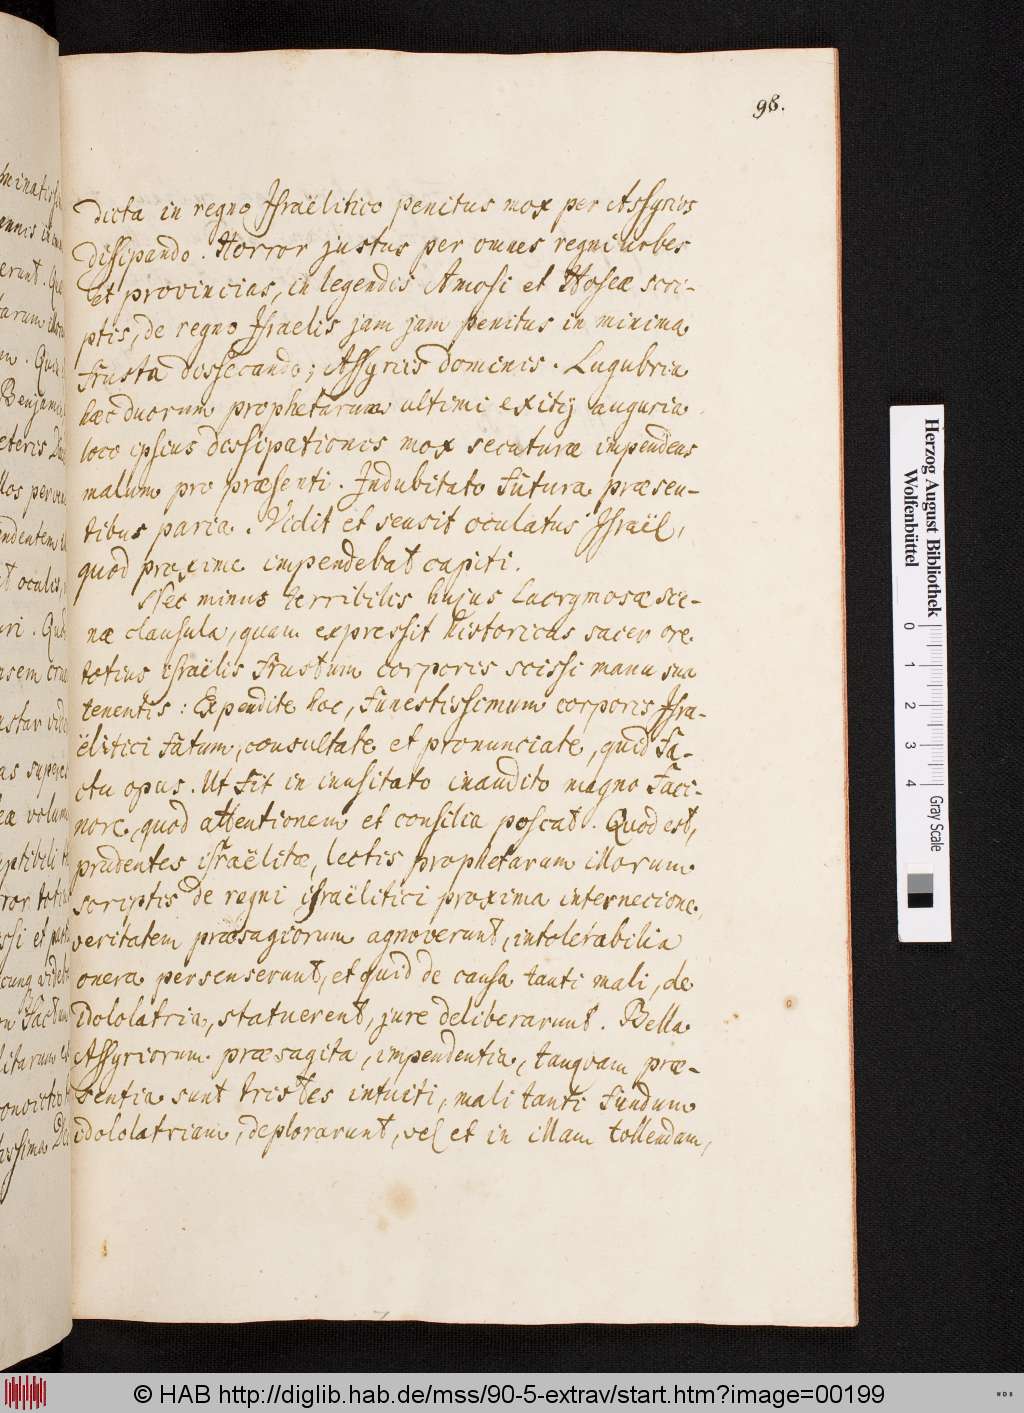 98.
dicta in regno Israëlitico penitus mox per Assyrios
dissipando. Horror justus per omnes regni urbes
et provincias, in legendis Amosi et Hoseæ scri-
ptis, de regno Israelis jam jam penitus in minima
frusta dissecando; Assyriis dominis. Lugubria
hæc duorum prophetarum ultimi exitij auguria
loco ipsius dissipationis mox secuturæ impendens
malum pro præsenti. Indubitato futura præsen-
tibus paria. Vidit et sensit oculatus Israël,
quod proxime impendebat capiti.
Nec minus terribilis hujus lacrymosæ sce-
næ clausula, quam expressit historicus sacer ore
totius israëlis frustum corporis scissi manu sua
tenentis: Expendite hoc, funestissimum corporis Isra-
ëlitici fatum, consultate et pronunciate, quid fa-
ctu opus. Ut fit in inusitato inaudito magno faci-
nore, quod attentionem et consilia poscat. Quod est,
prudentes israëlitæ, lectis prophetarum illorum
scriptis de regni israëlitici proxima internecione,
veritatem præsagiorum agnoverunt, intolerabilia
onera persenserunt, et quid de causa tanti mali, de
idololatria, statuerent, jure deliberarunt. Bella
Assyriorum præsagita, impendentia, tanquam præ-
sentia sunt tristes intuiti, mali tanti fundum
idololatriam, deplorarunt, vel et in illam tollendam,
Herzog August Bibliothek
Wolfenbüttel
0 1 2 3 4
Gray Scale
© HAB http://diglib.hab.de/mss/90-5-extrav/start.htm?image=00199